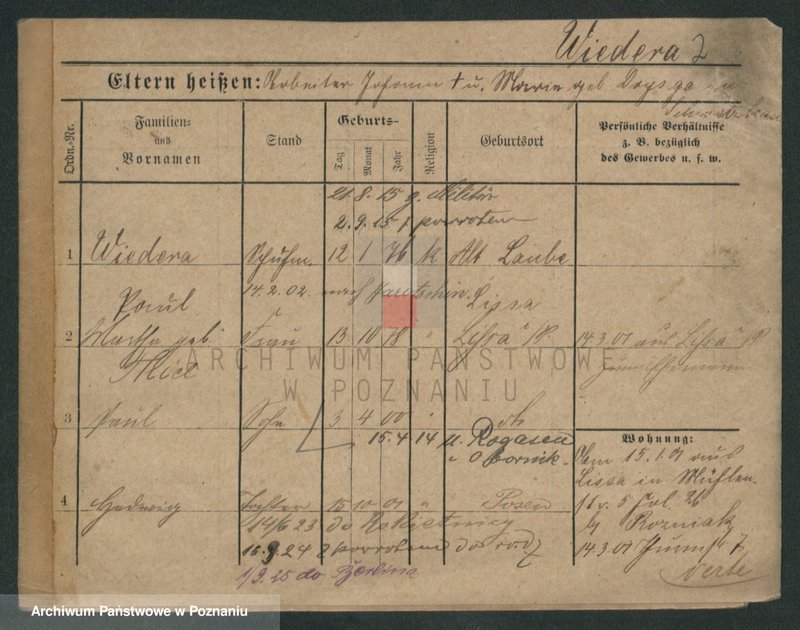 Wiedera 2
Eltern heißen: Arbeiter Johann † u. Marie geb
Ordn.-Nr.
Familien- und Vornamen
Stand
Geburts-
Tag
Monat
Jahr
Religion
Geburtsort
Persönliche Verhältnisse
z. B. bezüglich
des Gewerbes u. s. w.
21.8.15 z. Militär
2.9.15 powrotem
1 Wiedera Schuhm. 12 1 76 k Alt Laube
14.2.02. nach Lissa
Paul
2 Martha geb. Frau 13 10 78 " Lissa i/P. 14.3.01 aus Lissa i/P.
zum Ehemann
3 Paul Sohn 3 4 00 " do
15.4.14 u. Rogasen
" Obornik.
Wohnung:
15.1.01 aus
Lissa in Mühlen
4 Hedwig Tochter 15 10 01 " Posen
14/6 23 do Rokietnicy
16.9.24 z powrotem do rodz
14.3.01
verte
1/9.25 do Berlina
ARCHIWUM PAŃSTWOWE
W POZNANIU
Archiwum Państwowe w Poznaniu